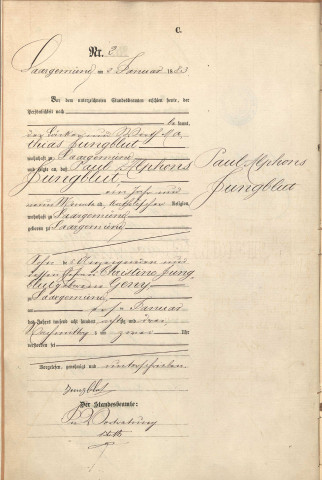 C.
Nr. 2
Saargemünd am 2 Januar 1883
Vor dem unterzeichneten Standesbeamten erschien heute, der
Persönlichkeit nach
be kannt,
der Bäcker und Wirth Ma
thias Jungblut
wohnhaft zu Saargemünd
und zeigte an, daß Paul Alphons
Jungblut
Paul Alphons
Jungblut
ein Jahr und
neun Monate alt, katholischer Religion,
wohnhaft zu Saargemünd
geboren zu Saargemünd
Sohn des Anzeigenden und
dessen Ehefrau Christine Jung
blut geborene
zu Saargemünd
am ersten Januar
des Jahres tausend acht hundert achtzig und drei
Nachmittags um zwei Uhr
verstorben sei
Vorgelesen, genehmigt und unterschrieben
Jungblut
Der Standesbeamte: